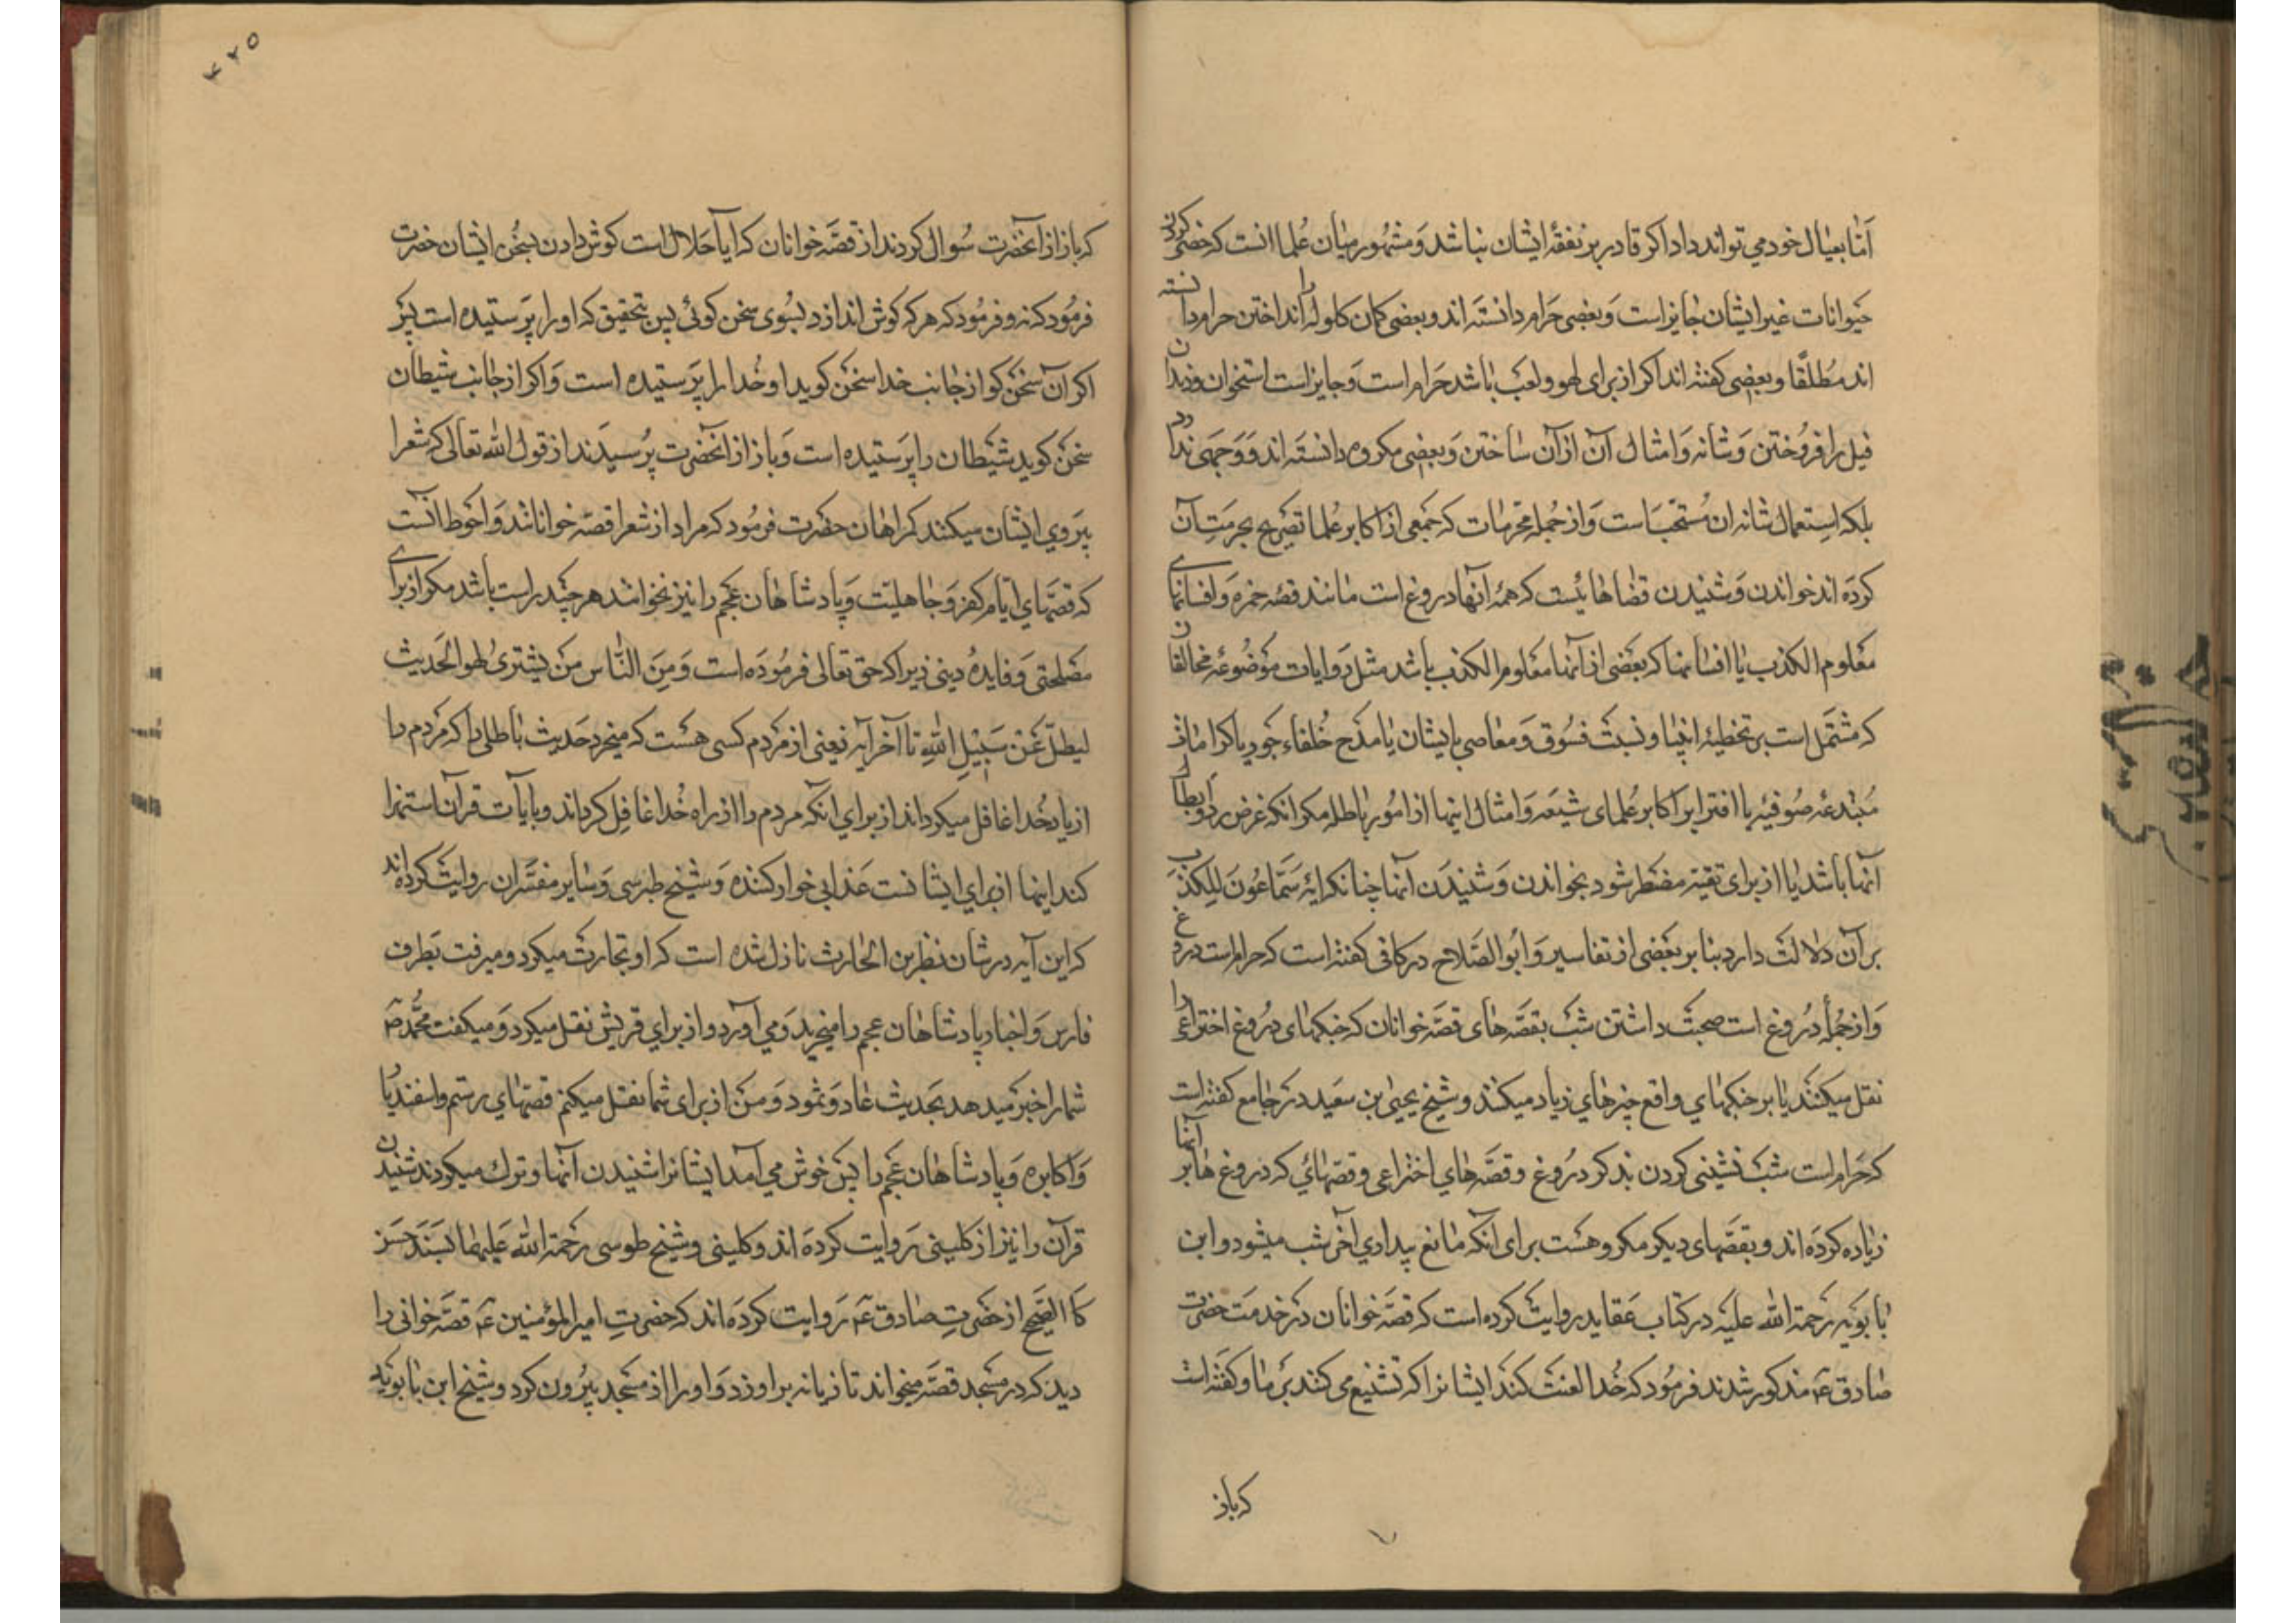 امّا بعیال خود می تواند داد اکر قادر بر نفقهٔ ایشان نباشد و مشهور میان علما انست که خصی کردن
حیوانات غیر ایشان جایز است و بعضی حرام دانسته اند و بعضی کمان کلوله را انداختن حرام دانسته
اند مطلقا و بعضی کفته اند اکر از برای لهو و لعب باشد حرام است و جایز است استخوان و دندان
فیل را فروختن و شانه و امثال آن از آن ساختن و بعضی مکروه دانسته اند و وجهی ندارد
بلکه استعمال شانه ان مستحب است و از جمله محرمات که جمعی از اکابر علما تصریح بحرمت آن
کرده اند خواندن و شنیدن قصّاهائیست که همهٔ آنها دروغ است مانند قصّه حمزه و افسانهای
معلوم الکذب یا افسانهها که بعضی از آنها معلوم الکذب باشد مثل روایات موضوعه مخالفان
که مشتمل است بر تخطیهٔ انبیا و نسبت فسوق و معاصی بایشان یا مدح خلفاء جور یا کرامات
مبتدعه صوفیه یا افترا بر اکابر علمای شیعه و امثال اینها از امور باطله مکر انکه غرض رد و ابطال
آنها باشد یا از برای تقیه مضطر شود بخواندن و شنیدن آنها چنانکه ایه سمّاعون للکذب
بر آن دلالت دارد بنا بر بعضی از تفاسیر و ابوالصّلاح در کافی کفته است که حرام است دروغ
و از جمله دروغ است صحبت داشتن شب بقصّه های قصّه خوانان که جنکهای دروغ اختراعی را
نقل میکنند یا بر جنکهای واقع چیزهای زیاد میکنند و شیخ یحیی بن سعید در جامع کفته است
که حرام است شب نشینی کردن بذکر دروغ و قصّه های اختراعی و قصّهائی که دروغ ها بر آنها
زیاده کرده اند و بقصّهای دیکر مکروهست برای آنکه مانع بیداری آخر شب میشود و ابن
بابویه رحمة الله علیه در کتاب عقاید روایت کرده است که قصّه خوانان در خدمت حضرت
صادق ع مذکور شدند فرمود که خدا لعنت کند ایشانرا که تشنیع می کنند بر ما و کفته است
که باز
۴۲۵
که باز از آنحضرت سوال کردند از قصّه خوانان که ایا حلال است کوش دادن بسخن ایشان حضرت
فرمود که نه و فرمود که هر که کوش اندازد بسوی سخن کوئی پس بتحقیق که او را پرستیده است پس
اکر آن سخن کو از جانب خدا سخن کوید او خدا را پرستیده است و اکر از جانب شیطان
سخن کوید شیطان را پرستیده است و باز از آنحضرت پرسیدند از قول الله تعالی که شعرا
پیروی ایشان میکنند کمراهان حضرت فرمود که مراد از شعرا قصّه خوانانند و احوط آنست
که قصّهای ایّام کفر و جاهلیّت و پادشاهان عجم را نیز نخوانند هر چند راست باشد مکر از برای
مصلحتی و فایدهٔ دینی زیرا که حق تعالی فرموده است و من النّاس من یشتری لهو الحدیث
لیضلّ عن سبیل الله تا آخر آیه یعنی از مردم کسی هست که میخرد حدیث باطلی را که مردم را
از یاد خدا غافل میکرداند از برای انکه مردم را از راه خدا غافل کرداند و بایات قرآن استهزا
کند اینها از برای ایشانست عذابی خوار کننده و شیخ طبرسی و سایر مفسّران روایت کرده اند
که این آیه در شان نضر بن الحارث نازل شده است که او تجارت میکرد و میرفت بطرف
فارس و اخبار پادشاهان عجم را میخرید و می آورد و از برای قریش نقل میکرد و میکفت محمّد ص
شما را خبر میدهد بحدیث عاد و ثمود و من از برای شما نقل میکنم قصّهای رستم و اسفندیار
و اکابره و پادشاهان عجم را پس خوش می آمد ایشانرا شنیدن آنها و ترک میکردند شنیدن
قرآن را نیز از کلینی روایت کرده اند و کلینی و شیخ طوسی رحمة الله علیهما بسند حسن
کالصّحیح از حضرت صادق ع روایت کرده اند که حضرت امیر المؤمنین ع قصّه خوانی را
دید که در مسجد قصّه میخواند تازیانه بر او زد و او را از مسجد بیرون کرد و شیخ ابن بابویه